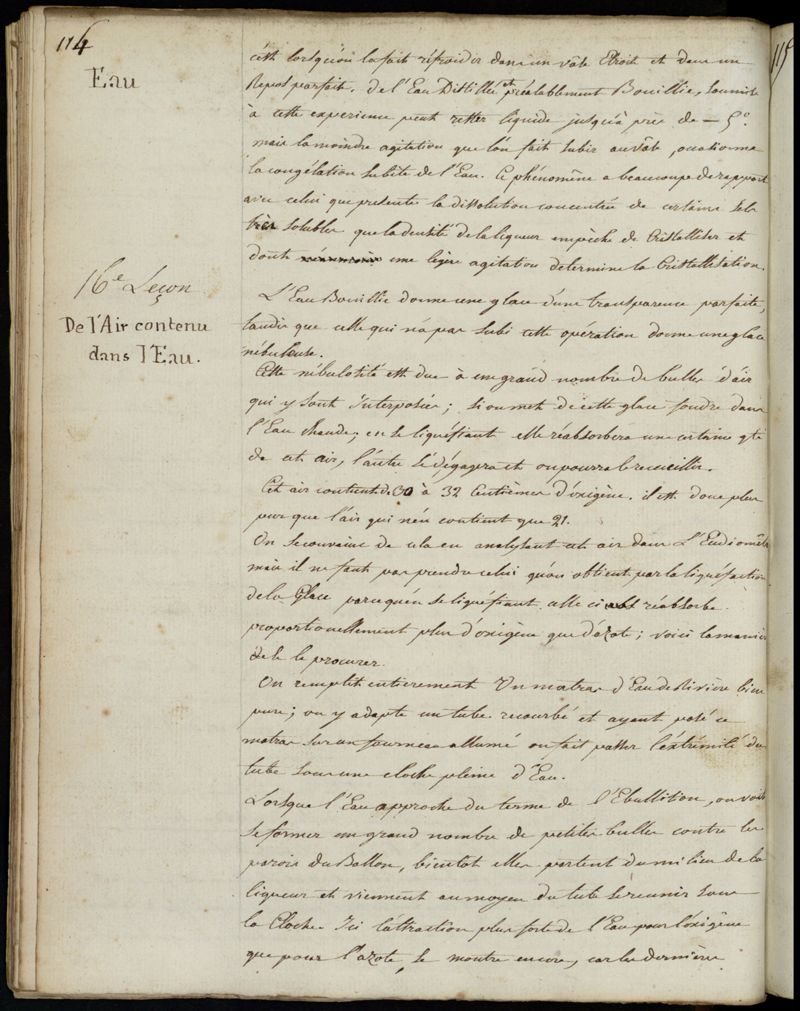 114
Eau
c'est lorsqu'on la fait réfroidir dans un vâse Etroit et dans un
Repos parfait. de l'Eau Distillée et préalablement Bouillie, soumise
à cette experience peut rester liquide jusqu'à près de – 5°.
mais la moindre agitation que l'on fait subir au vâse, occasionne
la congélation subite de l'Eau. Ce phénomène a beaucoup de rapport
avec celui que presente la dissolution concentrée de certains sels
très solubles que la densité de la liqueur empèche de Cristalliser et
dont une légère agitation determine la Cristallisation.
16e Leçon
De l'Air contenu
dans l'Eau.
L'Eau Bouillie donne une glace d'une transparence parfaite,
tandis que celle qui n'a pas subi cette opération donne une glace
nébuleuse.
Cette nébulosité est due à un grand nombre de bulles d'air
qui y sont Interposées; si on met de cette glace fondre dans
l'Eau chaude, en se liquéfiant elle réabsorbera une certaine qté
de cet air, l'autre se dégagera et on pourra le recueillir.
Cet air contient de 30 à 32 Centièmes d'óxigène. il est donc plus
pur que l'air qui n'en contient que 21.
On se convainc de cela en analysant cet air dans L'Eudiomètre
mais il ne faut pas prendre celui qu'on obtient par la liquéfaction
de la Glace parcequ'en se liquéfiant celle ci réabsorbe
proportionellement plus d'oxigène que d'azote; voici la manière
de se le procurer.
On remplit entierement Un matras d'Eau de Rivière bien
pure; on y adapte un tube recourbé et ayant posé ce
matras sur un fourneau allumé on fait passer l'éxtrémité du
tube sous une cloche pleine d'Eau.
Lorsque l'Eau approche du terme de l'Ebullition, on voit
se former un grand nombre de petites bulles contre les
parois du Ballon, bientot elles partent du milieu de la
liqueur et viennent au moyen du tube se reunir sous
la Cloche. Ici l'attraction plus forte de l'Eau pour l'oxigène
que pour l'azote, se montre encore, car les dernières
115